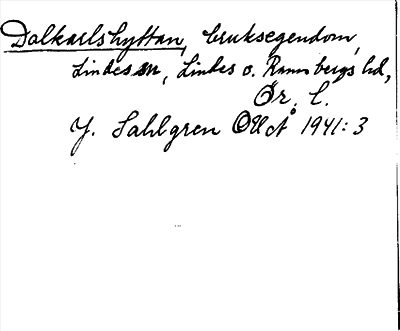 Dalkarlshyttan, bruksegendom,
Lindes sn, Lindes o. Ramsbergs hd,
Ör. l.
J. Sahlgren OUÅ 1941: 3